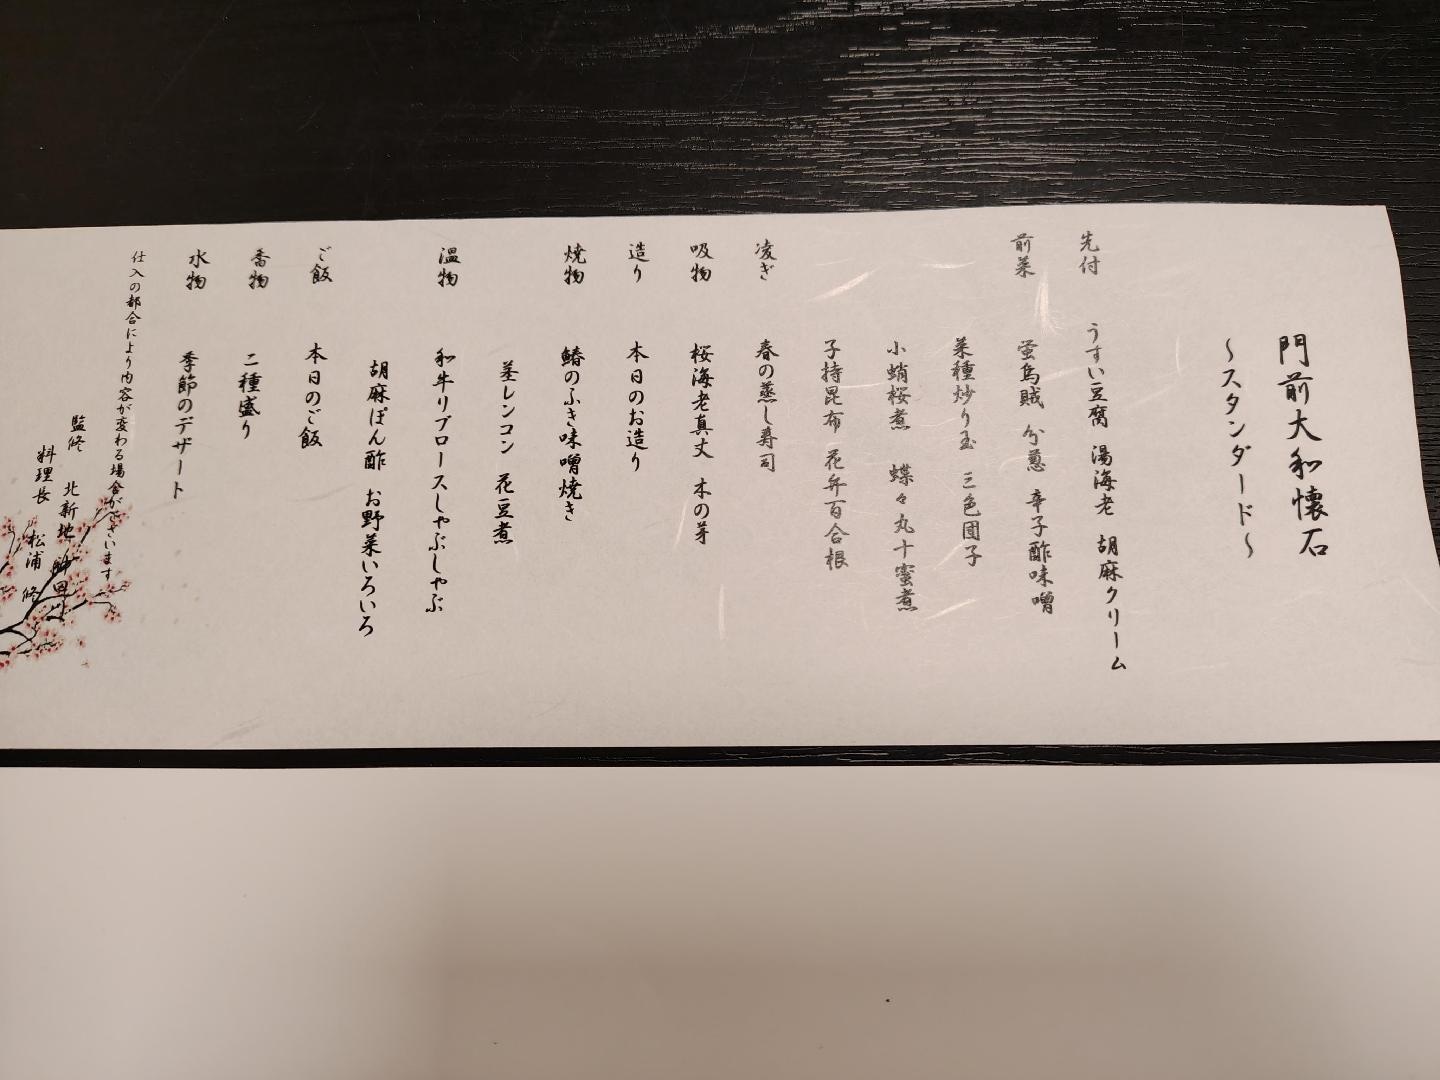 門前大和懐石
～スタンダード～
先付 うすい豆腐 湯海老 胡麻クリーム
前菜 蛍烏賊 分葱 辛子酢味噌
菜種炒り玉 三色団子
小蛸桜煮 蝶々丸十蜜煮
子持昆布 花弁百合根
凌ぎ 春の蒸し寿司
吸物 桜海老真丈 木の芽
造り 本日のお造り
焼物 鰆のふき味噌焼き
茎レンコン 花豆煮
温物 和牛リブロースしゃぶしゃぶ
胡麻ぽん酢 お野菜いろいろ
ご飯 本日のご飯
香物 二種盛り
水物 季節のデザート
仕入の都合により内容が変わる場合がございます
監修 北新地
料理長 松浦 修